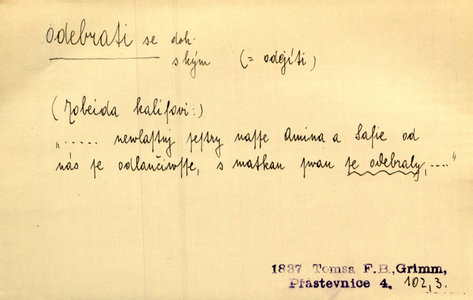 odebrati se doh.
s kým (= odjíti)
(Zobeida kalifovi:)
„..... newlastnj sestry nasse Amina a Safie od
nás se odlaučiwsse, s matkau swau se odebraly, ...."
1837 Tomsa F.B.,Grimm,
Pšastevnice 4. 102,3.